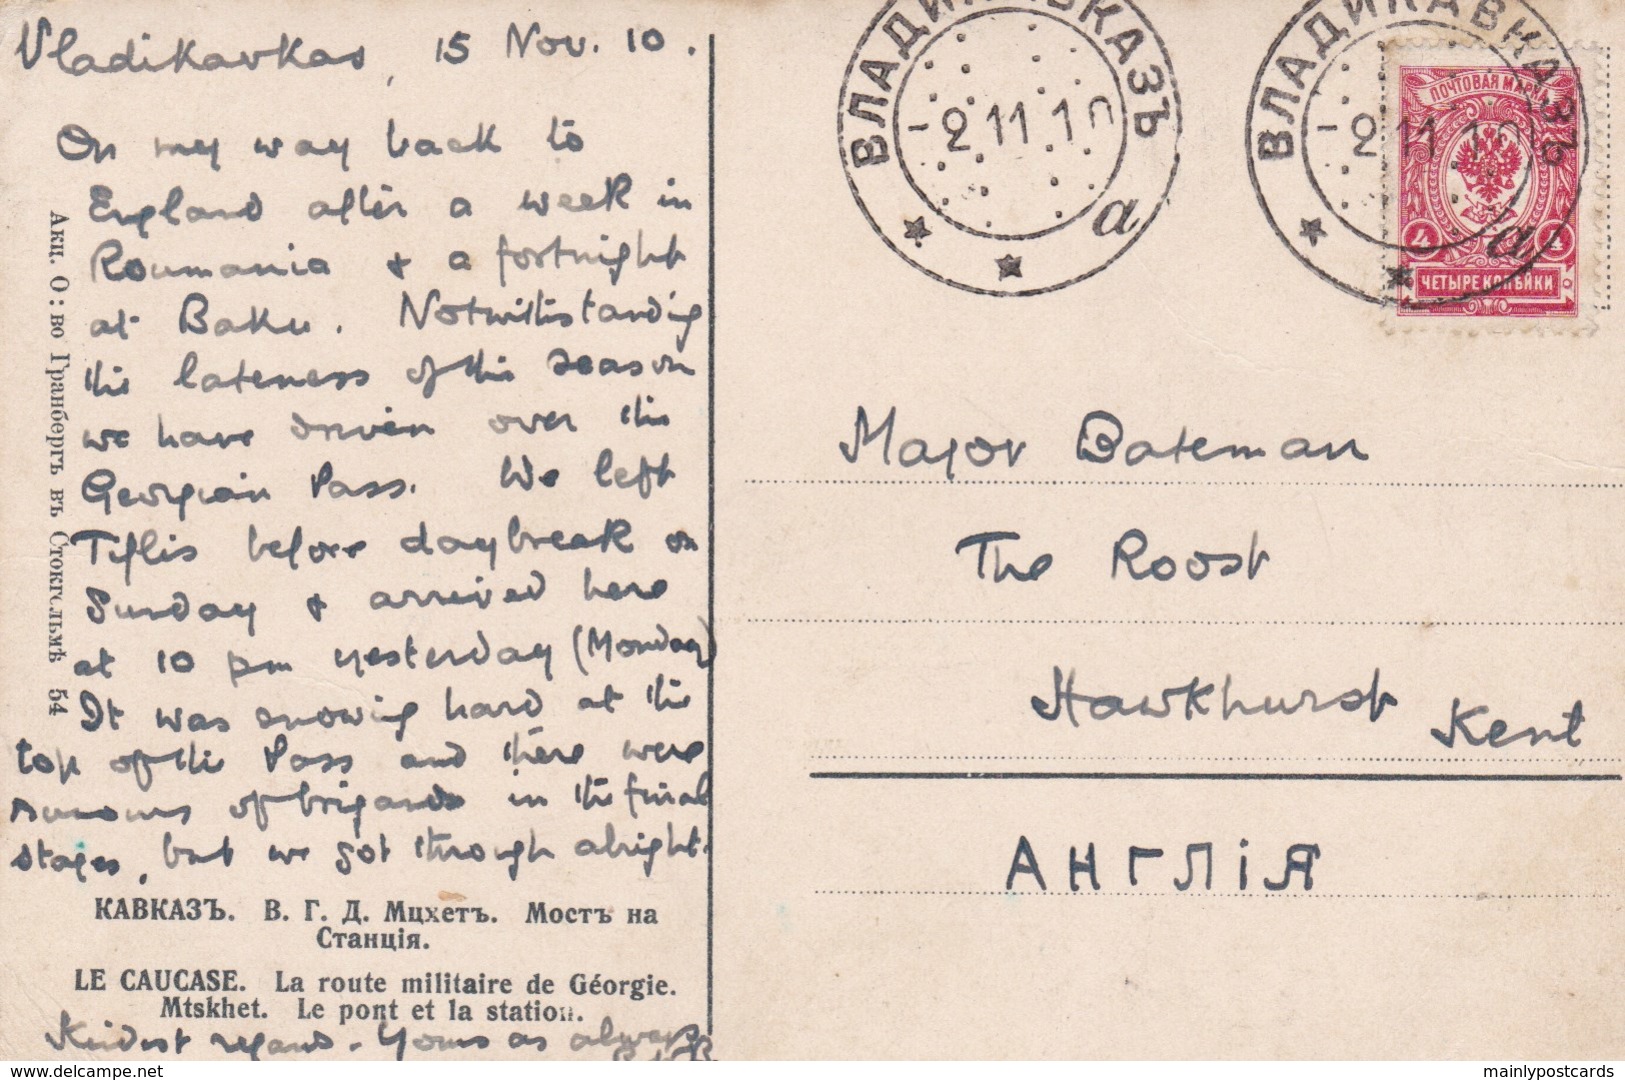 Vladikavkas, 15 Nov. 10.
On my way back to
England after a week in
Roumania & a fortnight
at Baku. Notwithstanding
the lateness of the season
we have driven over the
Georgian Pass. We left
Tiflis before daybreak on
Sunday & arrived here
at 10 pm yesterday (Monday)
It was snowing hard at the
top of the Pass and there were
rumours of brigands in the final
stages, but we got through alright.
КАВКАЗЪ. В. Г. Д. Мцхетъ. Мостъ на
Станція.
LE CAUCASE. La route militaire de Géorgie.
Mtskhet. Le pont et la station.
Kindest regards. Yours as always
Акц. О: во Гранбергъ въ Стокгольмѣ 54
ВЛАДИКАВКАЗЪ
-2 11 10
а
ВЛАДИКАВКАЗЪ
-2 11 10
а
ПОЧТОВАЯ МАРКА
4 4
ЧЕТЫРЕ КОПѢЙКИ
Major Bateman
The Roost
Hawkhurst
Kent
АНГЛІЯ
delcampe.net
mainlypostcards